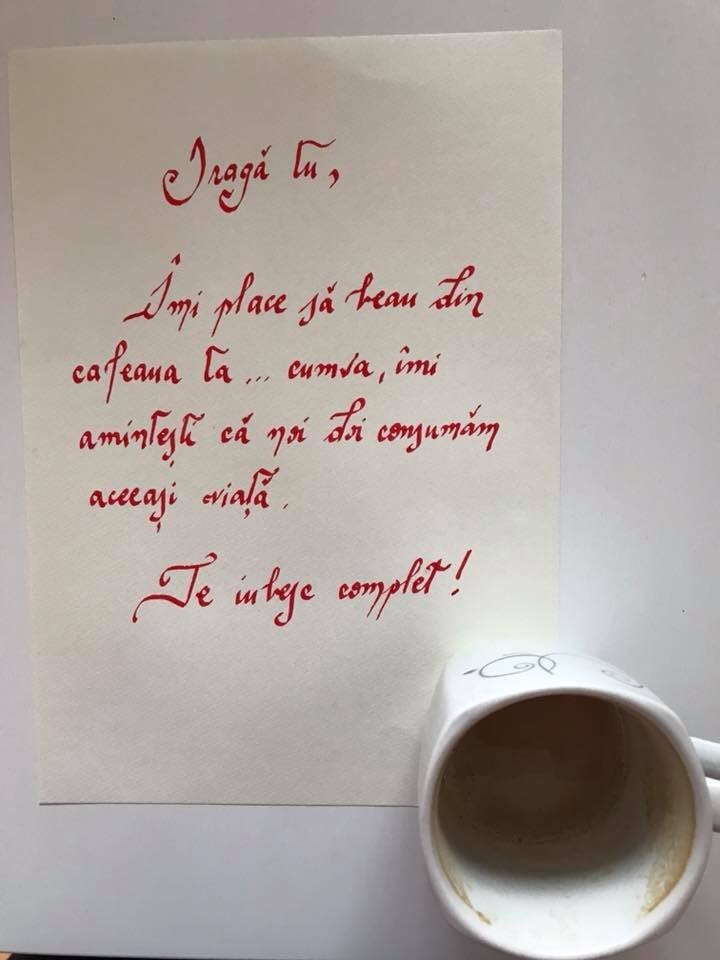 Dragă tu,
Îmi place să beau din
cafeaua ta... cumva, îmi
amintești că noi doi consumăm
aceeași viață.
Te iubesc complet!